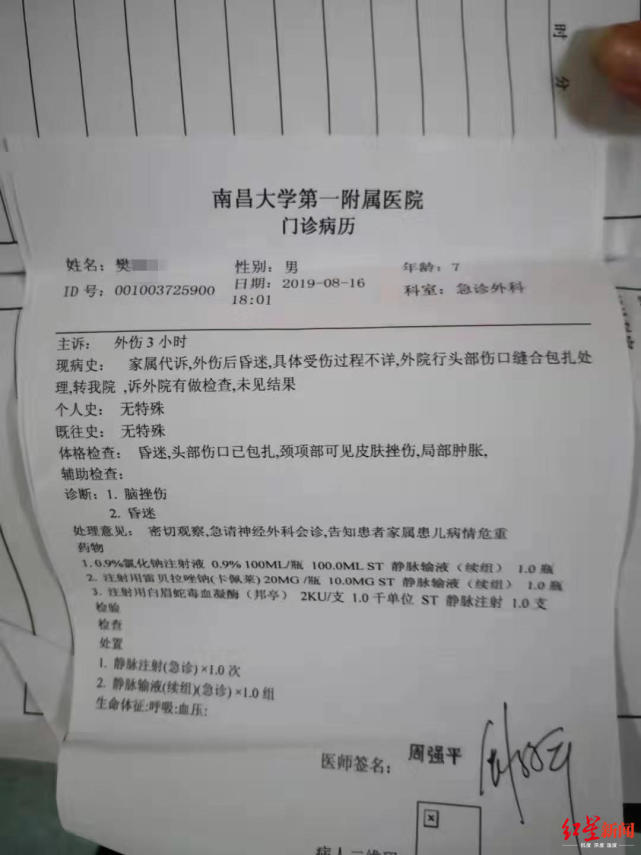 时
分
南昌大学第一附属医院
门诊病历
姓名: 樊 性别: 男 年龄: 7
ID 号: 001003725900 日期: 2019-08-16 18:01 科室: 急诊外科
主诉: 外伤 3 小时
现病史: 家属代诉,外伤后昏迷,具体受伤过程不详,外院行头部伤口缝合包扎处
理,转我院 ,诉外院有做检查,未见结果
个人史: 无特殊
既往史: 无特殊
体格检查: 昏迷,头部伤口已包扎,颈项部可见皮肤挫伤,局部肿胀,
辅助检查:
诊断: 1. 脑挫伤
2. 昏迷
处理意见: 密切观察,急请神经外科会诊,告知患者家属患儿病情危重
药物
1. 0.9%氯化钠注射液 0.9% 100ML/瓶 100.0ML ST 静脉输液（续组） 1.0 瓶
2. 注射用雷贝拉唑钠(卡佩莱) 20MG /瓶 10.0MG ST 静脉输液（续组） 1.0 瓶
3. 注射用白眉蛇毒血凝酶（邦亭） 2KU/支 1.0 千单位 ST 静脉注射 1.0 支
检验
检查
处置
1. 静脉注射(急诊)×1.0 次
2. 静脉输液(续组)(急诊)×1.0 组
生命体征:呼吸:血压:
医师签名: 周强平
病人二维码
红星新闻